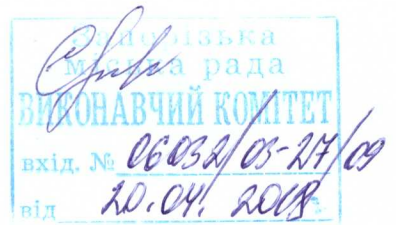 Запорізька
міська рада
ВИКОНАВЧИЙ КОМІТЕТ
вхід. № 06032/03-27/09
від 20.04. 2018